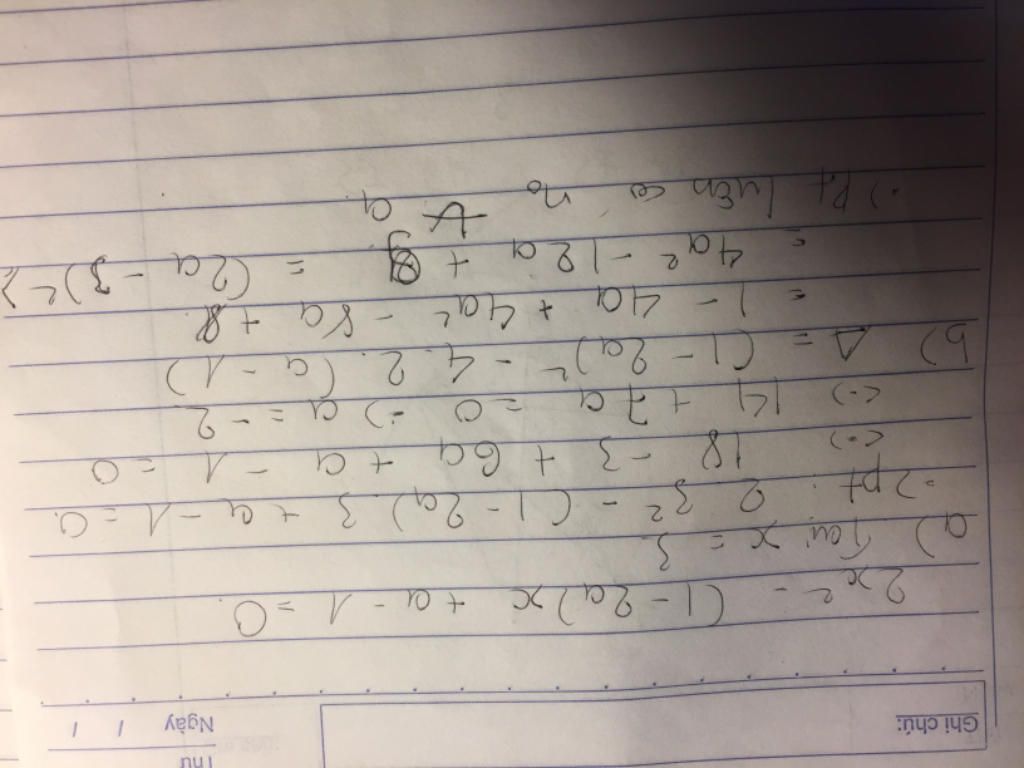 Thứ
Ngày / /
Ghi chú:
2x² - (1 - 2a)x + a - 1 = 0.
a) Tại x = 3
=> pt: 2.3² - (1 - 2a).3 + a - 1 = 0.
<=> 18 - 3 + 6a + a - 1 = 0
<=> 14 + 7a = 0 => a = -2
b) Δ = (1 - 2a)² - 4.2.(a - 1)
= 1 - 4a + 4a² - 8a + 8.
= 4a² - 12a + 9 = (2a - 3)² ≥
=> Pt luôn có n₀ ∀ a.